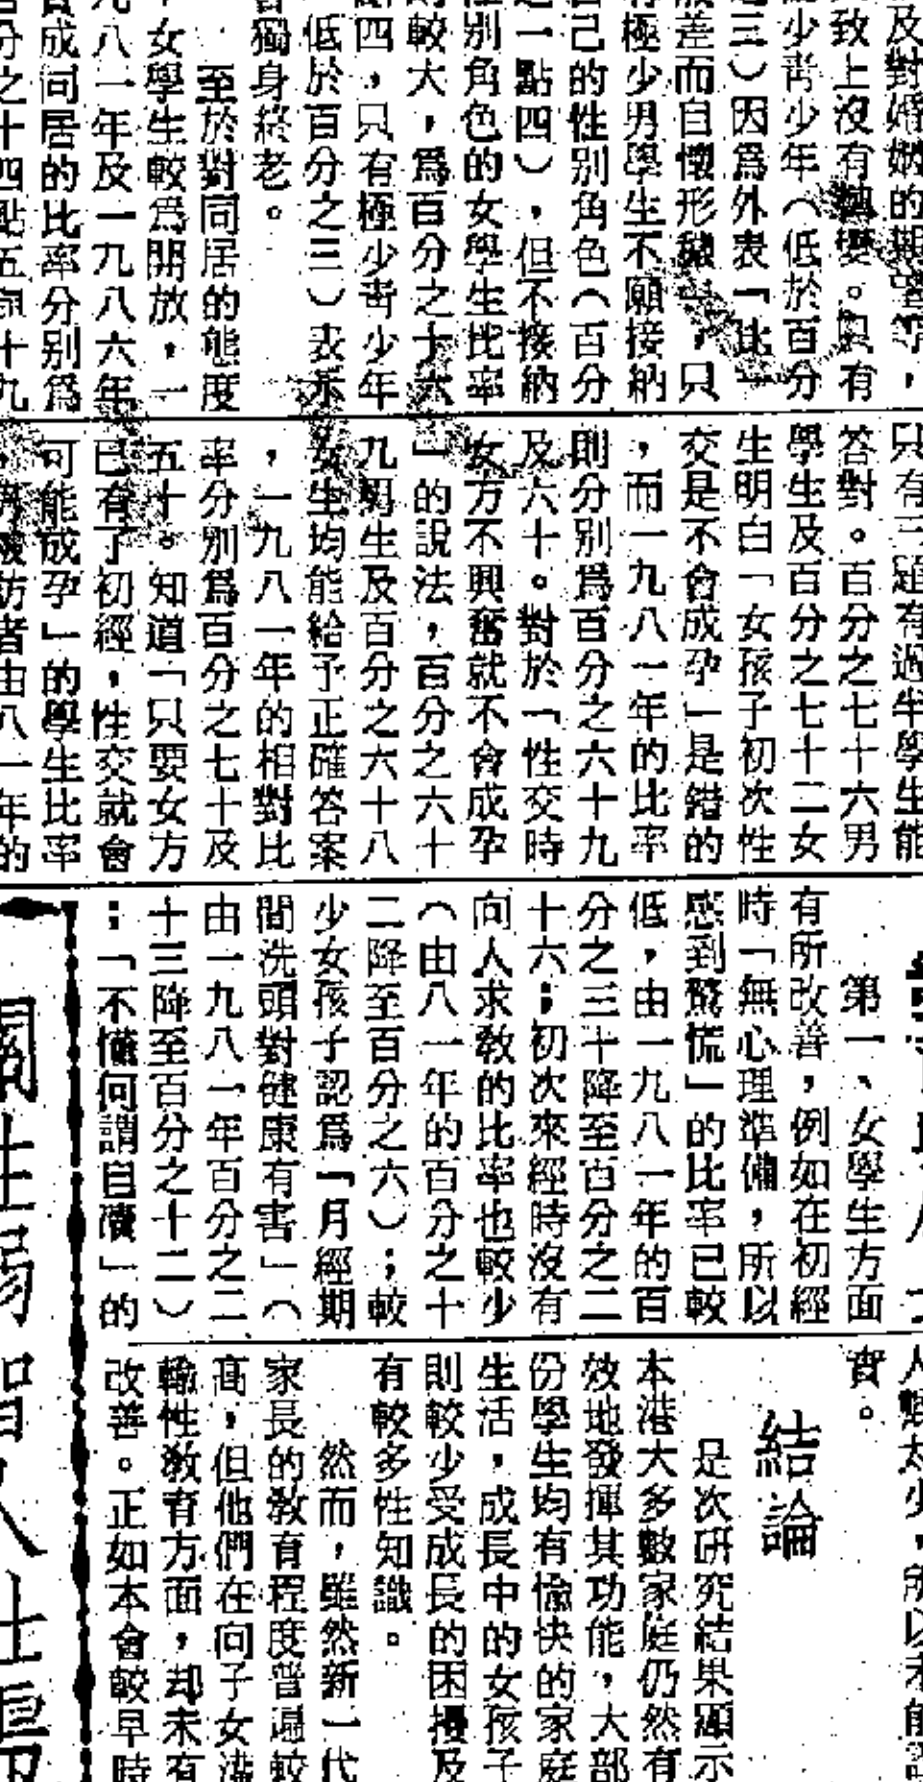 及對婚姻的期望等，
致上沒有轉變。只有
少靑少年（低於百分
三）因爲外表「比
差而自懷形穢」，只
極少男學生不願接納
己的性別角色（百分
一點四），但不接納
別角色的女學生比率
較大，爲百分之十六
四，只有極少靑少年
低於百分之三）表示
獨身終老。
至於對同居的態度
女學生較爲開放，一
八一年及一九八六年
成同居的比率分別爲
分之十四點五與十九
只有三題有過半學生能
答對。百分之七十六男
學生及百分之七十二女
生明白「女孩子初次性
交是不會成孕」是錯的
，而一九八一年的比率
則分別爲百分之六十九
及六十。對於「性交時
女方不興奮就不會成孕
」的說法，百分之六十
九男生及百分之六十八
女生均能給予正確答案
，一九八一年的相對比
率分別爲百分之七十及
五十。知道「只要女方
已有了初經，性交就會
可能成孕」的學生比率
被訪者由八一年的
第一、女學生方面
有所改善，例如在初經
時「無心理準備，所以
感到驚慌」的比率已較
低，由一九八一年的百
分之三十降至百分之二
十六；初次來經時沒有
向人求敎的比率也較少
（由八一年的百分之十
二降至百分之六）；較
少女孩子認爲「月經期
間洗頭對健康有害」（
由一九八一年百分之二
十三降至百分之十二）
；「不懂何謂自瀆」的
太少，所以未能
實。
結論
是次硏究結果顯示
本港大多數家庭仍然有
效地發揮其功能，大部
份學生均有愉快的家庭
生活，成長中的女孩子
則較少受成長的困擾及
有較多性知識。
然而，雖然新一代
家長的敎育程度普遍較
高，但他們在向子女灌
輸性敎育方面，却未有
改善。正如本會較早時